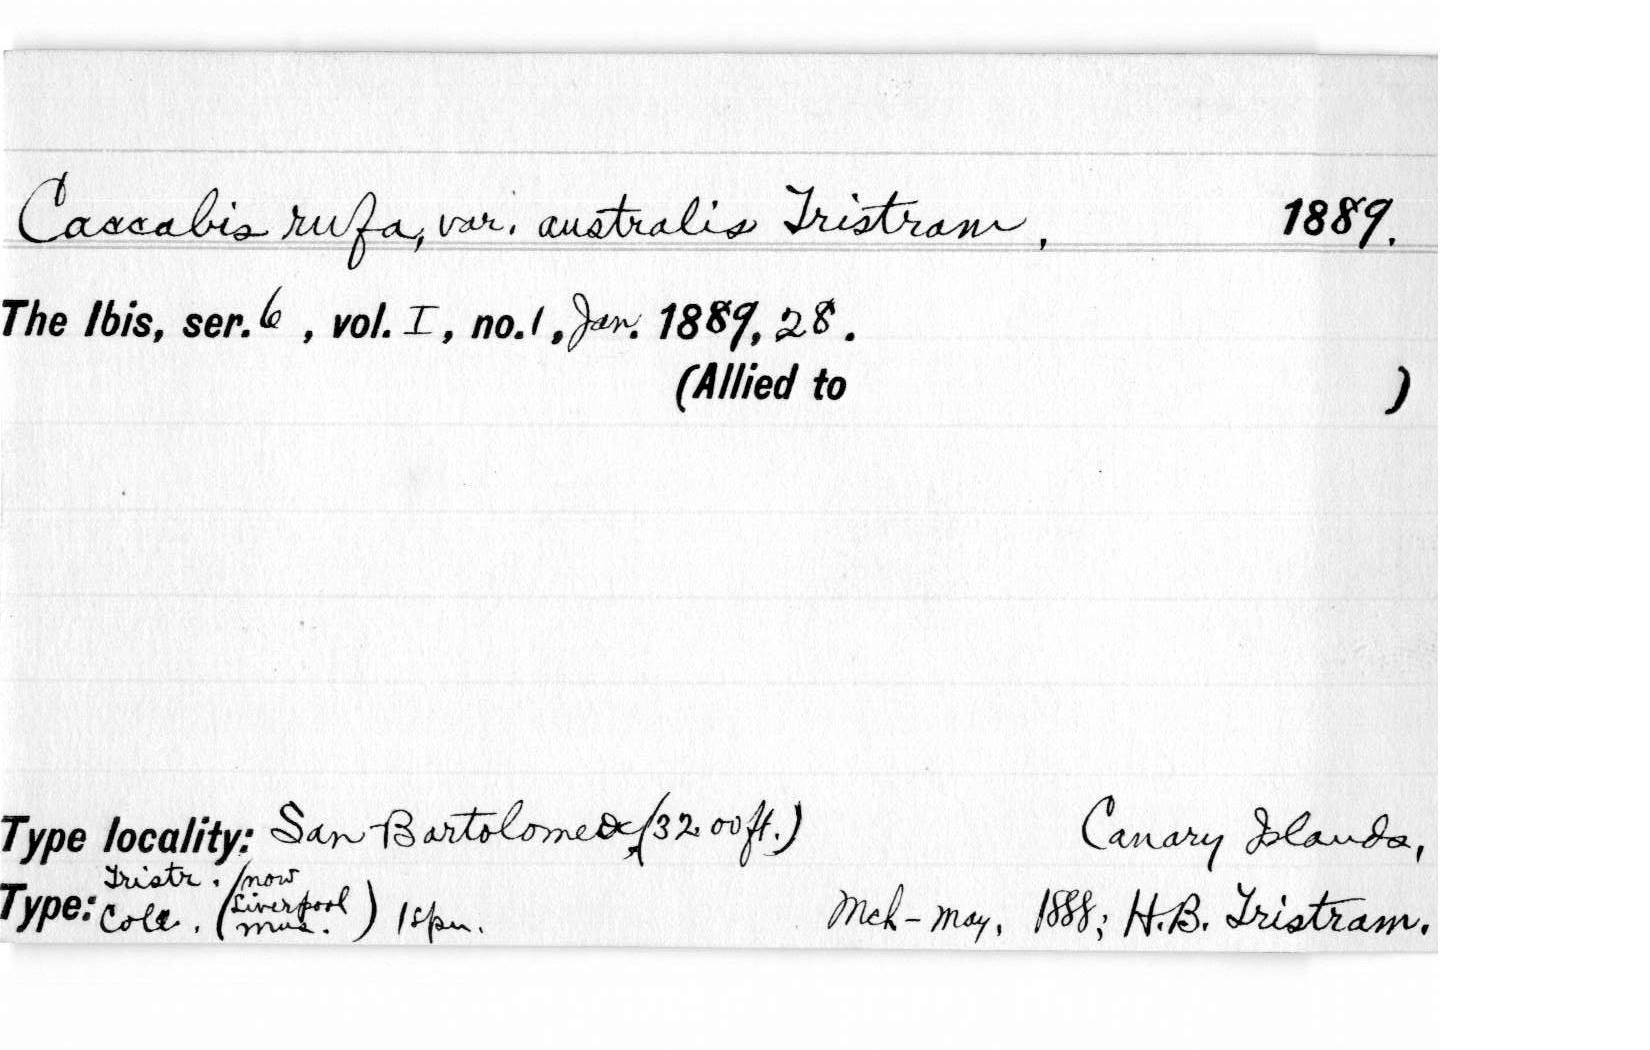 Caccabis rufa, var. australis Tristram, 1889.
The Ibis, ser. 6, vol. I, no. 1, Jan. 1889, 28.
(Allied to )
Type locality: San Bartolomeo (3200 ft.) Canary Islands,
Type: Tristr. Coll. (now Liverpool Mus.) 1 spm. Mch - May, 1888; H.B. Tristram.